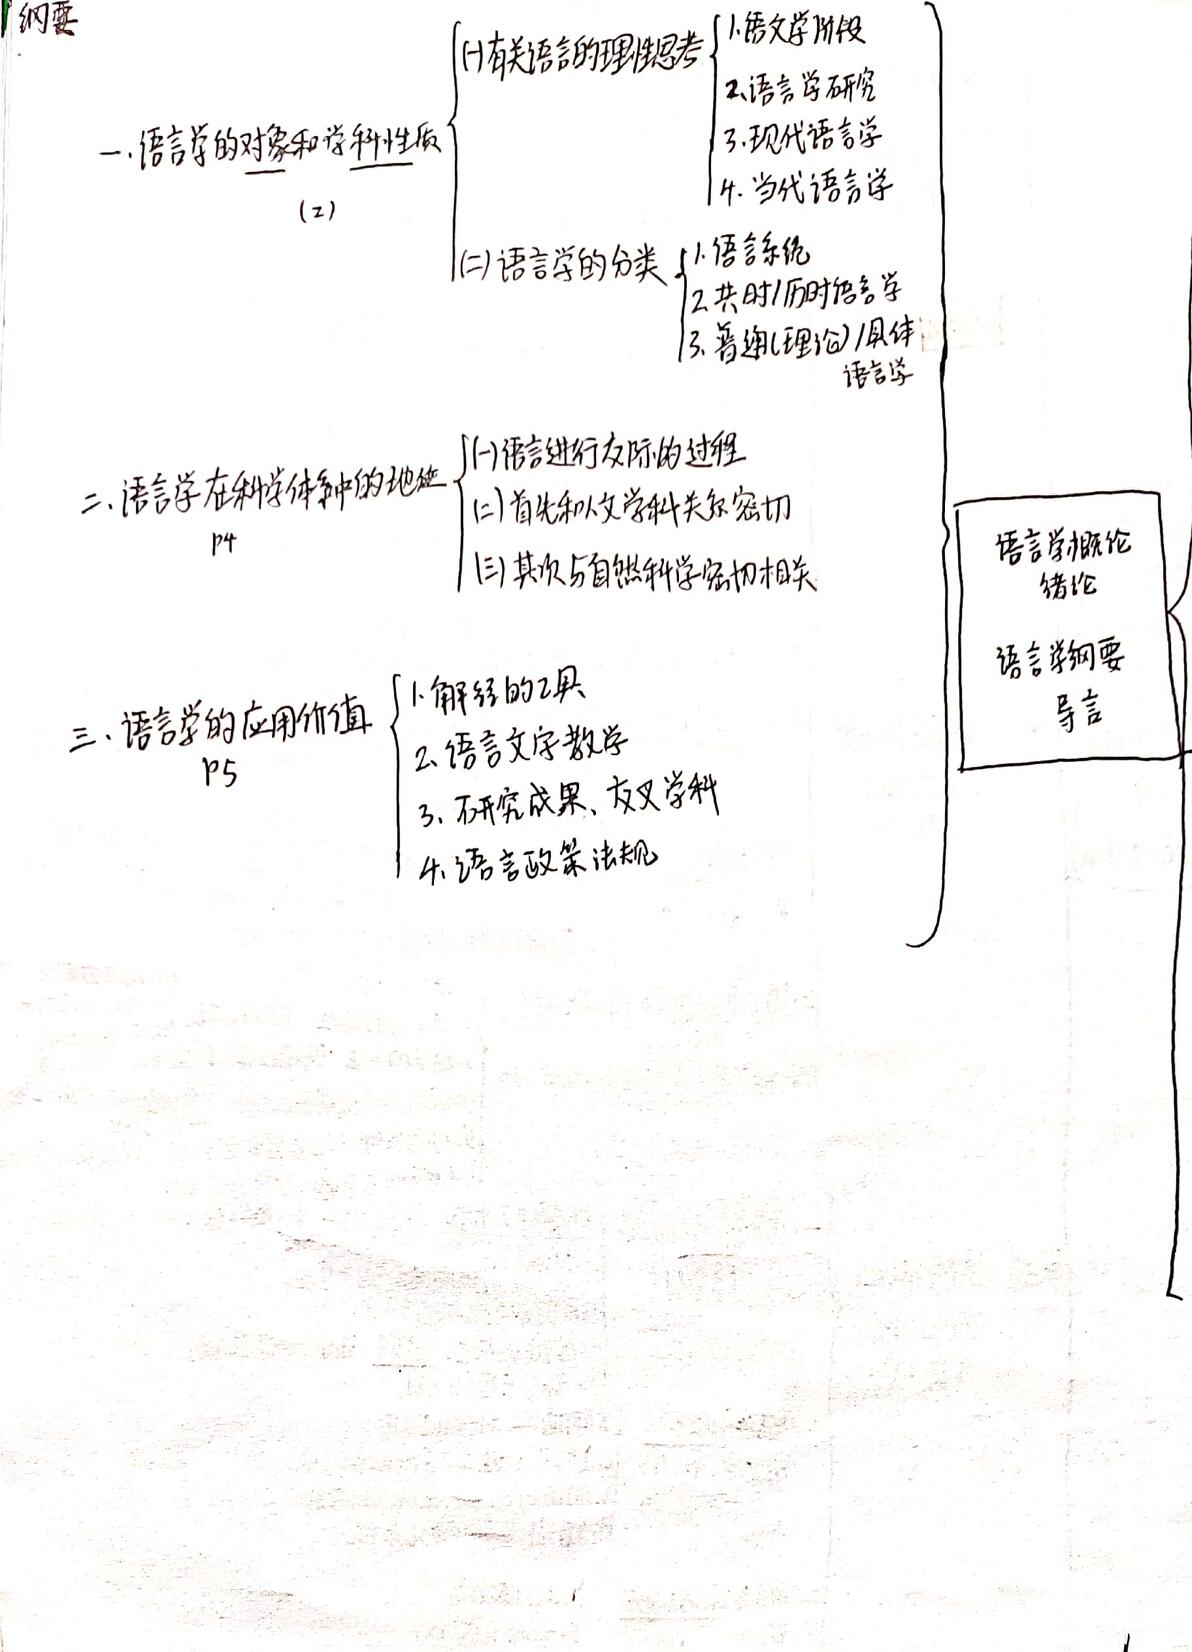 纲要
一、语言学的对象和学科性质
(2)
(一)有关语言的理性思考
1.语文学阶段
2.语言学研究
3.现代语言学
4.当代语言学
(二)语言学的分类
1.语言系统
2.共时/历时语言学
3.普通(理论)/具体
语言学
二、语言学在科学体系中的地位
P4
(一)语言进行交际的过程
(二)首先和人文学科关系密切
(三)其次与自然科学密切相关
三、语言学的应用价值
P5
1.解经的工具
2.语言文字教学
3.研究成果、交叉学科
4.语言政策法规
语言学概论
绪论
语言学纲要
导言